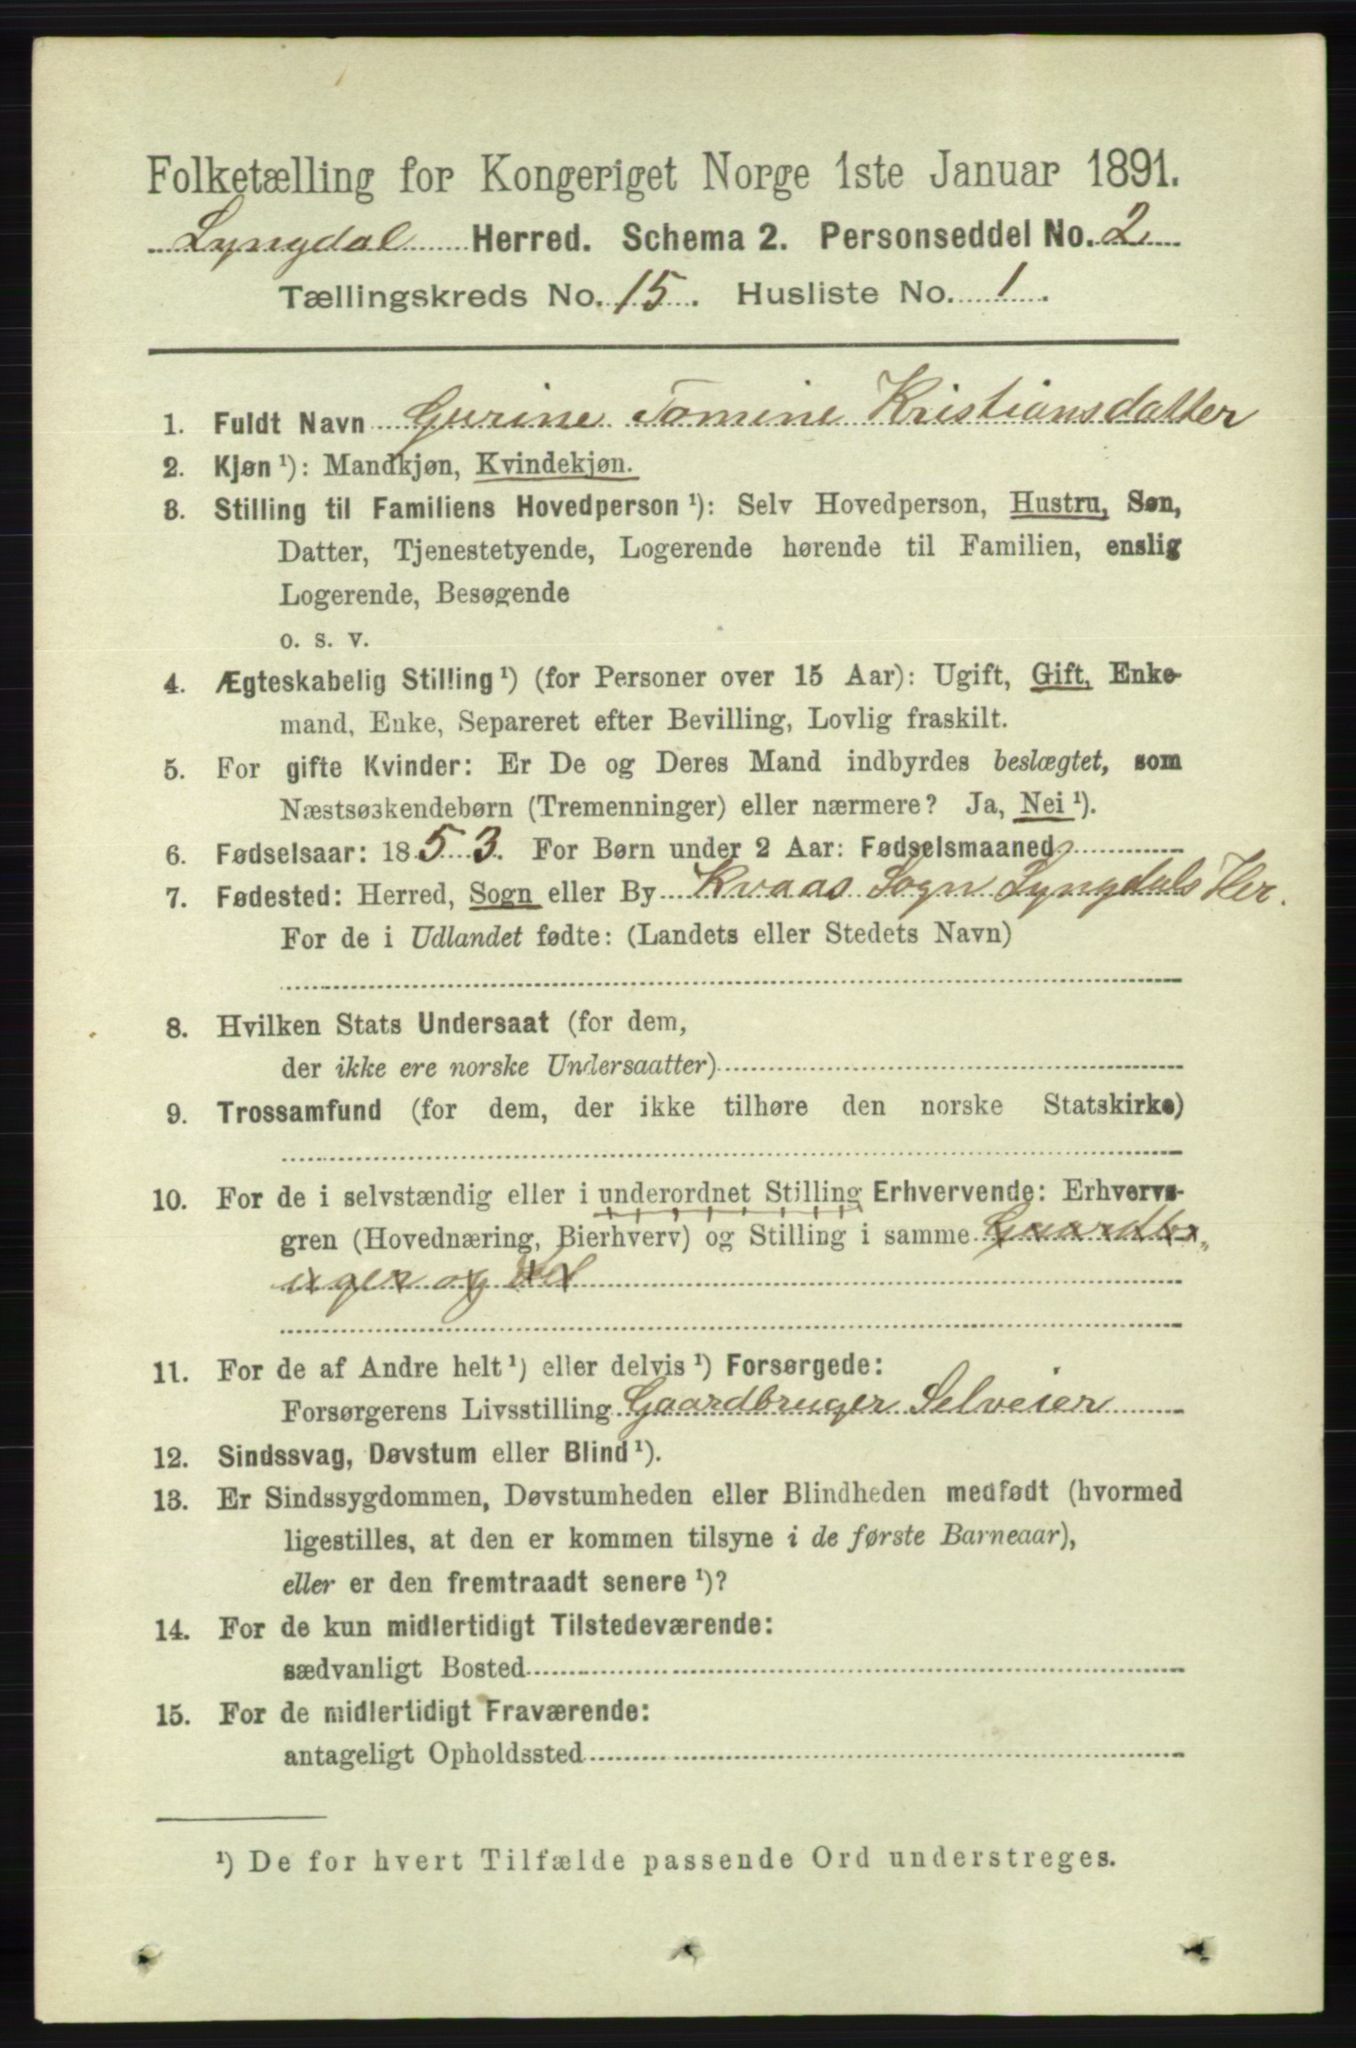 Folketælling for Kongeriget Norge 1ste Januar 1891.
Lyngdal Herred. Schema 2. Personseddel No. 2
Tællingskreds No. 15. Husliste No. 1.
1. Fuldt Navn Gurine Tomine Kristiansdatter
2. Kjøn ¹): Mandkjøn, Kvindekjøn.
3. Stilling til Familiens Hovedperson ¹): Selv Hovedperson, Hustru, Søn,
Datter, Tjenestetyende, Logerende hørende til Familien, enslig
Logerende, Besøgende
o. s. v.
4. Ægteskabelig Stilling ¹) (for Personer over 15 Aar): Ugift, Gift, Enke-
mand, Enke, Separeret efter Bevilling, Lovlig fraskilt.
5. For gifte Kvinder: Er De og Deres Mand indbyrdes beslægtet, som
Næstsøskendebørn (Tremenninger) eller nærmere? Ja, Nei ¹).
6. Fødselsaar: 1853. For Børn under 2 Aar: Fødselsmaaned
7. Fødested: Herred, Sogn eller By Kvaas Sogn Lyngdals Her.
For de i Udlandet fødte: (Landets eller Stedets Navn)
8. Hvilken Stats Undersaat (for dem,
der ikke ere norske Undersaatter)
9. Trossamfund (for dem, der ikke tilhøre den norske Statskirke)
10. For de i selvstændig eller i underordnet Stilling Erhvervende: Erhvervs-
gren (Hovednæring, Bierhverv) og Stilling i samme Gaardbr„
uger og Sel
11. For de af Andre helt ¹) eller delvis ¹) Forsørgede:
Forsørgerens Livsstilling Gaardbruger Selveier
12. Sindssvag, Døvstum eller Blind ¹).
13. Er Sindssygdommen, Døvstumheden eller Blindheden medfødt (hvormed
ligestilles, at den er kommen tilsyne i de første Barneaar),
eller er den fremtraadt senere ¹)?
14. For de kun midlertidigt Tilstedeværende:
sædvanligt Bosted
15. For de midlertidigt Fraværende:
antageligt Opholdssted
¹) De for hvert Tilfælde passende Ord understreges.